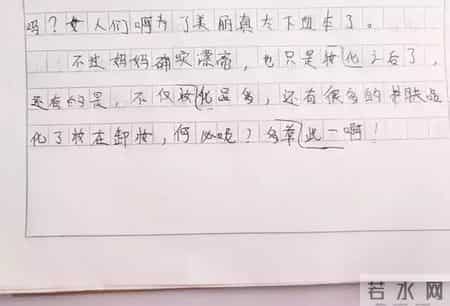 吗？女人们啊为了美丽真太下血本了。
不过妈妈确实漂亮，也只是妆化之后了，
还有的是，不仅妆化品多，还有很多的护肤品
化了妆在卸妆，何必呢？多草此一啊！
若水网